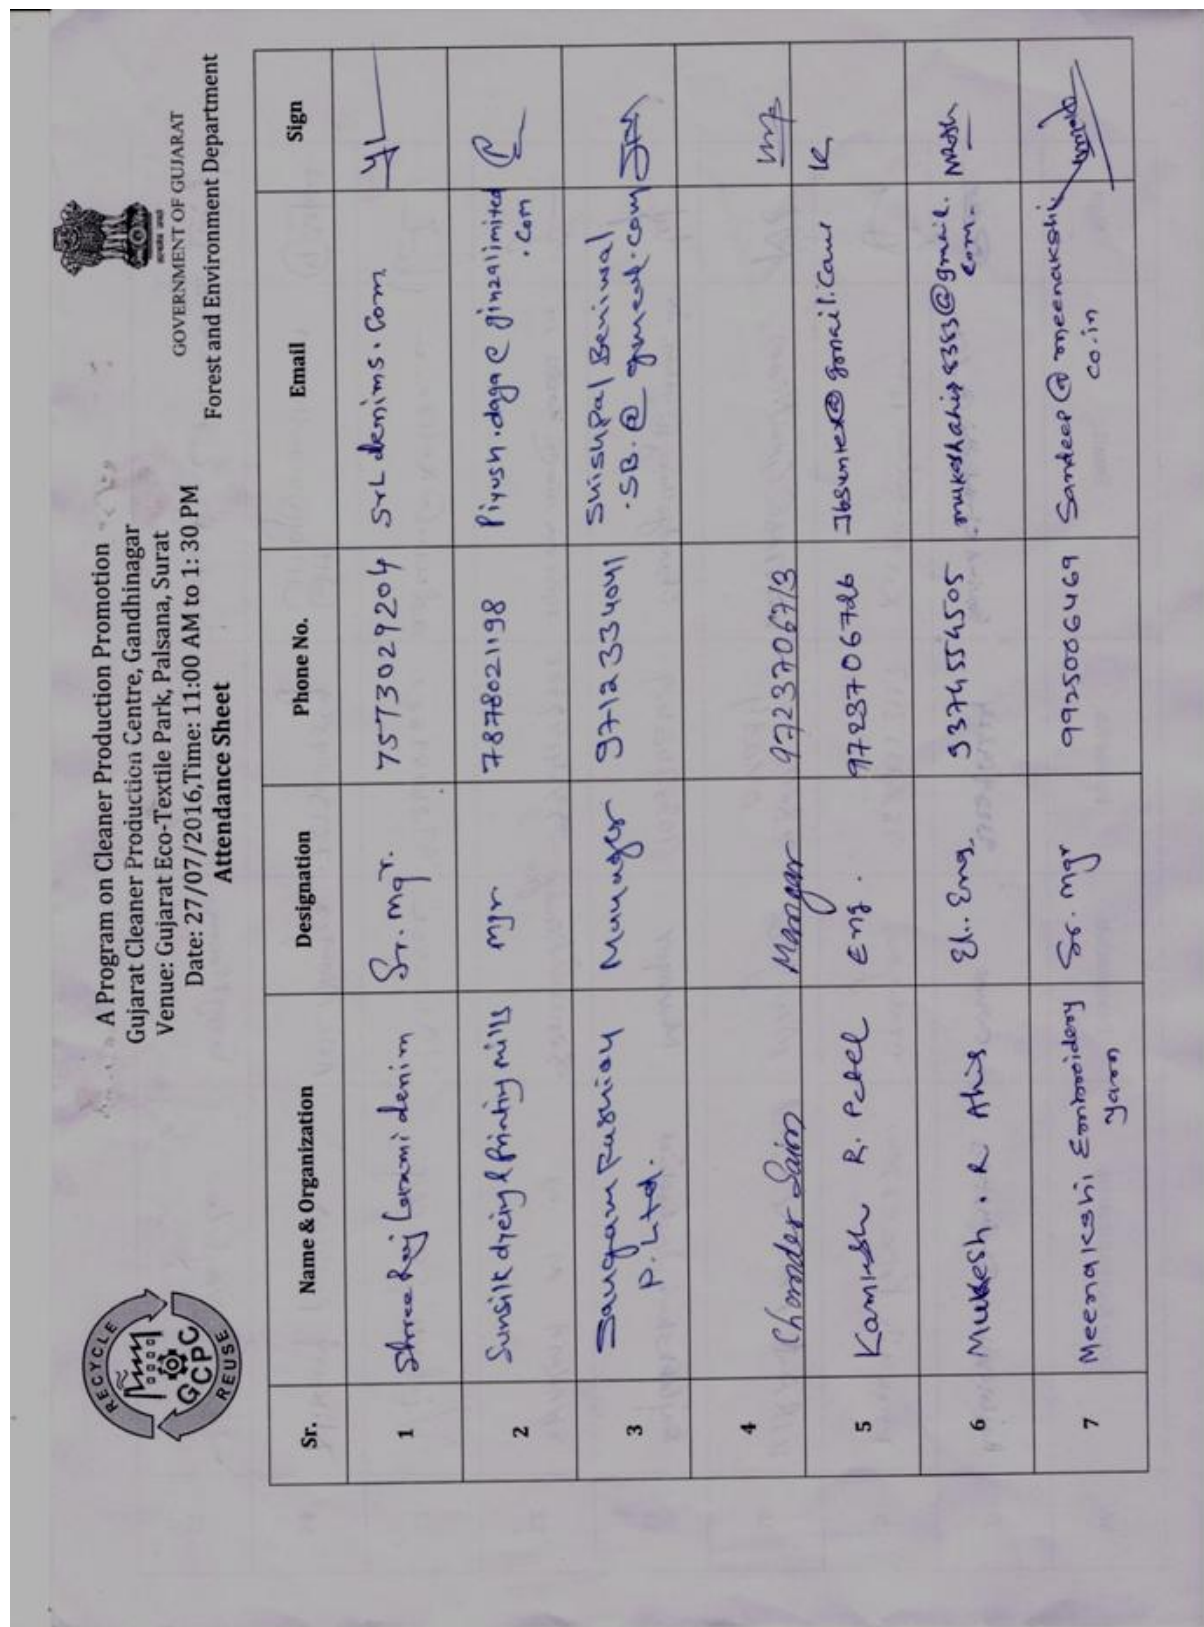 RECYCLE
GCPC
REUSE
A Program on Cleaner Production Promotion
Gujarat Cleaner Production Centre, Gandhinagar
Venue: Gujarat Eco-Textile Park, Palsana, Surat
Date: 27/07/2016,Time: 11:00 AM to 1: 30 PM
Attendance Sheet
GOVERNMENT OF GUJARAT
Forest and Environment Department
Sr. Name & Organization Designation Phone No. Email Sign
1 Shree Raj Laxmi denim Sr. Mgr. 7573029204 SrL denims.Com
2 Sunsilk dyeing & Printing mills mgr 7878021198 Piyush.daga@ginzalimited
.Com
3 Sangam Fashion Manager 9712334041 Shishpal Beniwal
P. Ltd. .SB.@gmail.com
4 Chander Manger 9723706713
5 Kamlesh R. Patel Eng. 9723706726
6 Mukesh.R Ahir El. Eng. 9374554505
com.
7 Meenakshi Embroidery Sr. Mgr 9925006469 Sandeep@meenakshi
yarn co.in